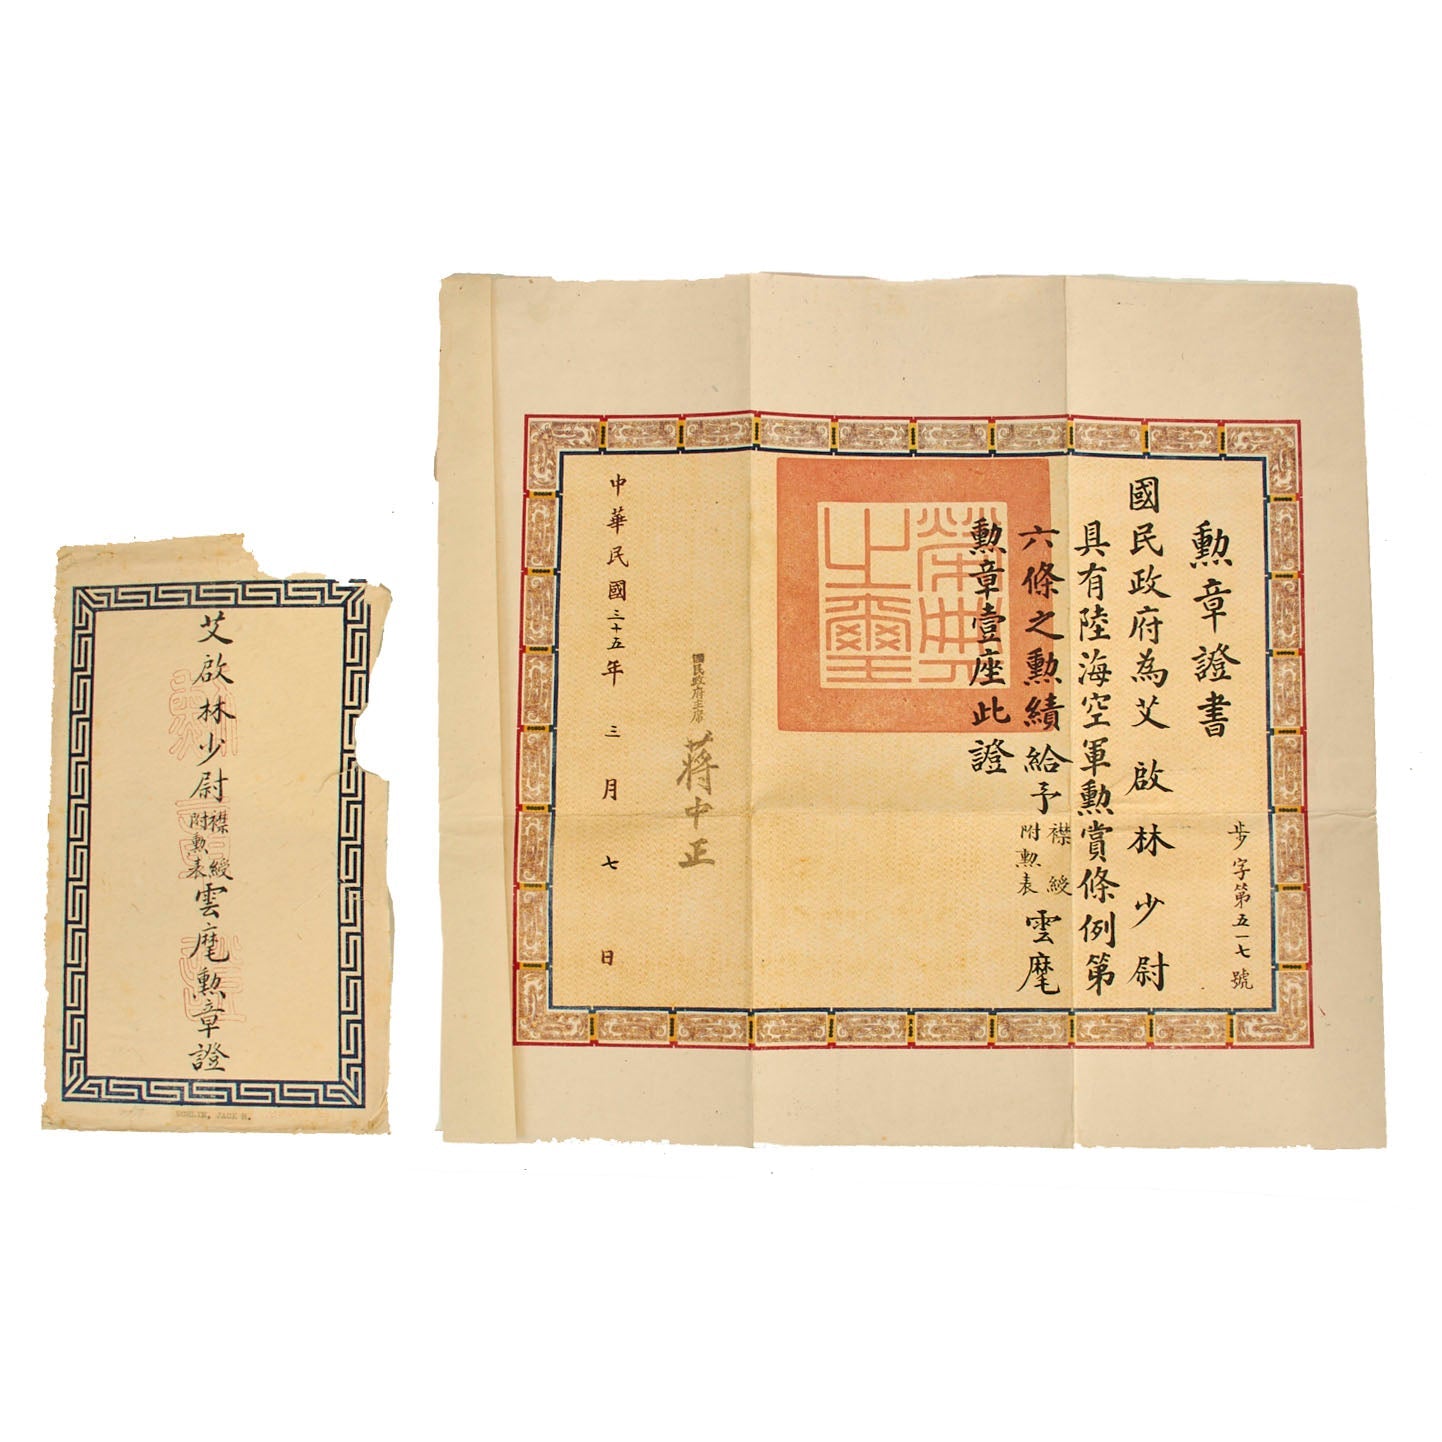 勲章證書
國民政府為艾啟林少尉
具有陸海空軍勲賞條例第
六條之勲績給予襟綬附勲表雲麾
勲章壹座此證
榮典之璽
國民政府主席
蔣中正
中華民國三十五年三月七日
步字第五一七號
艾啟林少尉襟綬附勲表雲麾勲章證
JACK H.